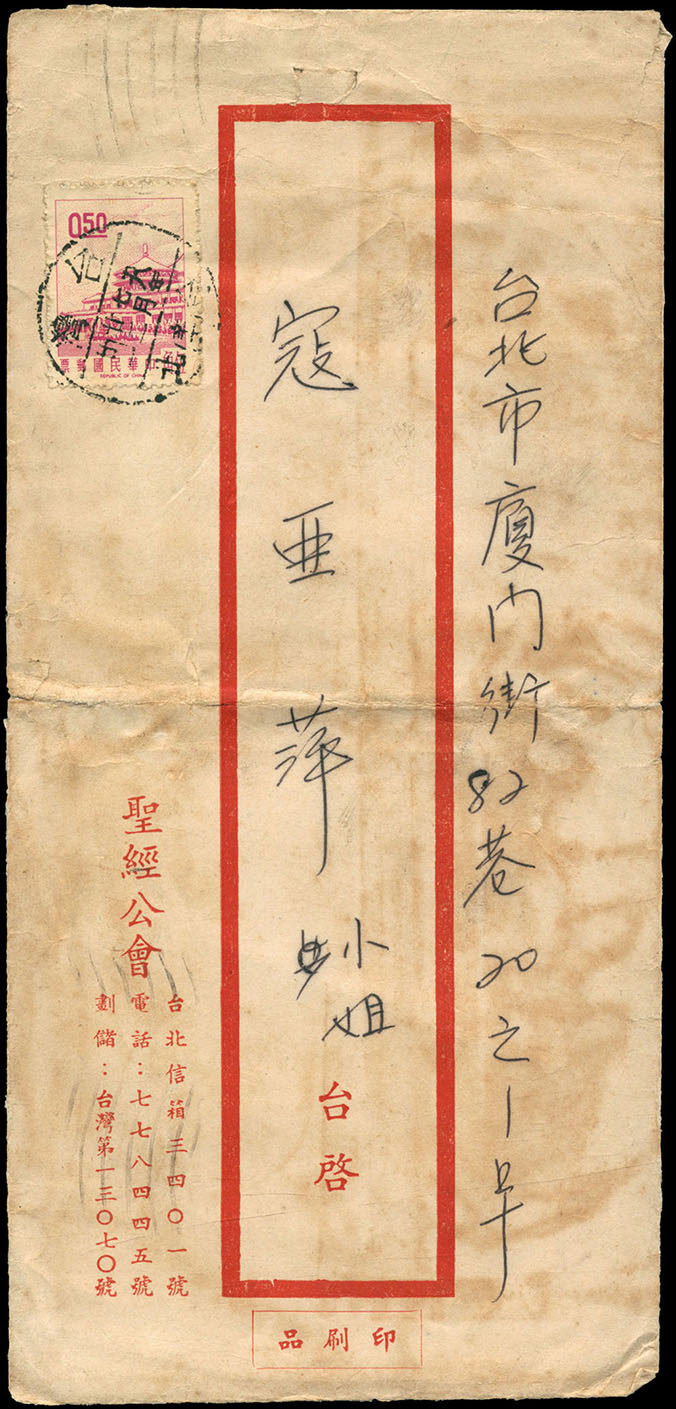 台北市廈門街82巷20之1号
寇亚萍小姐
台啓
0.50
票郵國民華中
REPUBLIC OF CHINA
台灣
台北信箱三四〇一號
電話：七七八四四五號
劃儲：台灣第一三〇七〇號
聖經公會
品刷印